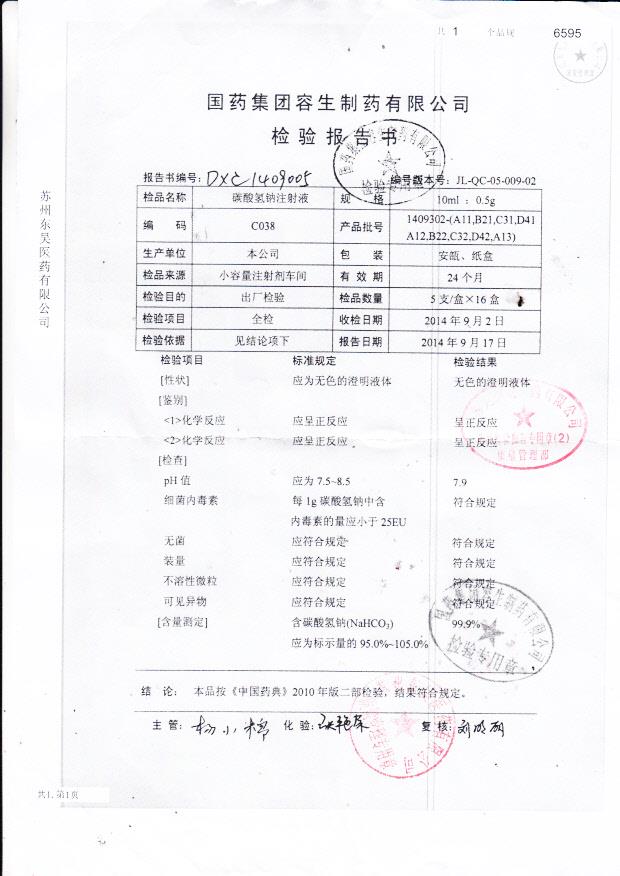 共 1 个品规 6595
国药集团容生制药有限公司
检验报告书
报告书编号: DXC1409005 编号版本号: JL-QC-05-009-02
检品名称 碳酸氢钠注射液 规 格 10ml : 0.5g
编 码 C038 产品批号 1409302-(A11,B21,C31,D41
A12,B22,C32,D42,A13)
生产单位 本公司 包 装 安瓿、纸盒
检品来源 小容量注射剂车间 有 效 期 24 个月
检验目的 出厂检验 检品数量 5 支/盒×16 盒
检验项目 全检 收检日期 2014 年 9 月 2 日
检验依据 见结论项下 报告日期 2014 年 9 月 17 日
检验项目 标准规定 检验结果
[性状] 应为无色的澄明液体 无色的澄明液体
[鉴别]
<1>化学反应 应呈正反应 呈正反应
<2>化学反应 应呈正反应 呈正反应
[检查]
pH 值 应为 7.5~8.5 7.9
细菌内毒素 每 1g 碳酸氢钠中含 符合规定
内毒素的量应小于 25EU
无菌 应符合规定 符合规定
装量 应符合规定 符合规定
不溶性微粒 应符合规定 符合规定
可见异物 应符合规定 符合规定
[含量测定] 含碳酸氢钠(NaHCO₃) 99.9%
应为标示量的 95.0%~105.0%
结 论: 本品按《中国药典》2010 年版二部检验，结果符合规定。
主 管: 杨小 化 验: 复 核: 刘
苏州东吴医药有限公司
检验专用章
专用章(2)
质量管理部
国药集团容生制药有限公司
检验专用章
共1, 第1页